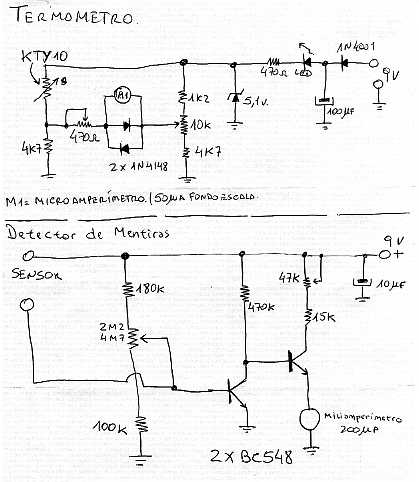 TERMOMETRO.
KTY10
1N4001
9V
470Ω LED
1K2
5,1v.
100µF
M1
10K
470Ω
4K7
4K7
2x1N4148
M1= MICROAMPERÍMETRO./50µA FONDO ESCALA.
Detector de Mentiras
9V
SENSOR
180K
470K
47K
10µF
2M2
4M7
15K
100K
Miliamperímetro
200µA
2XBC548